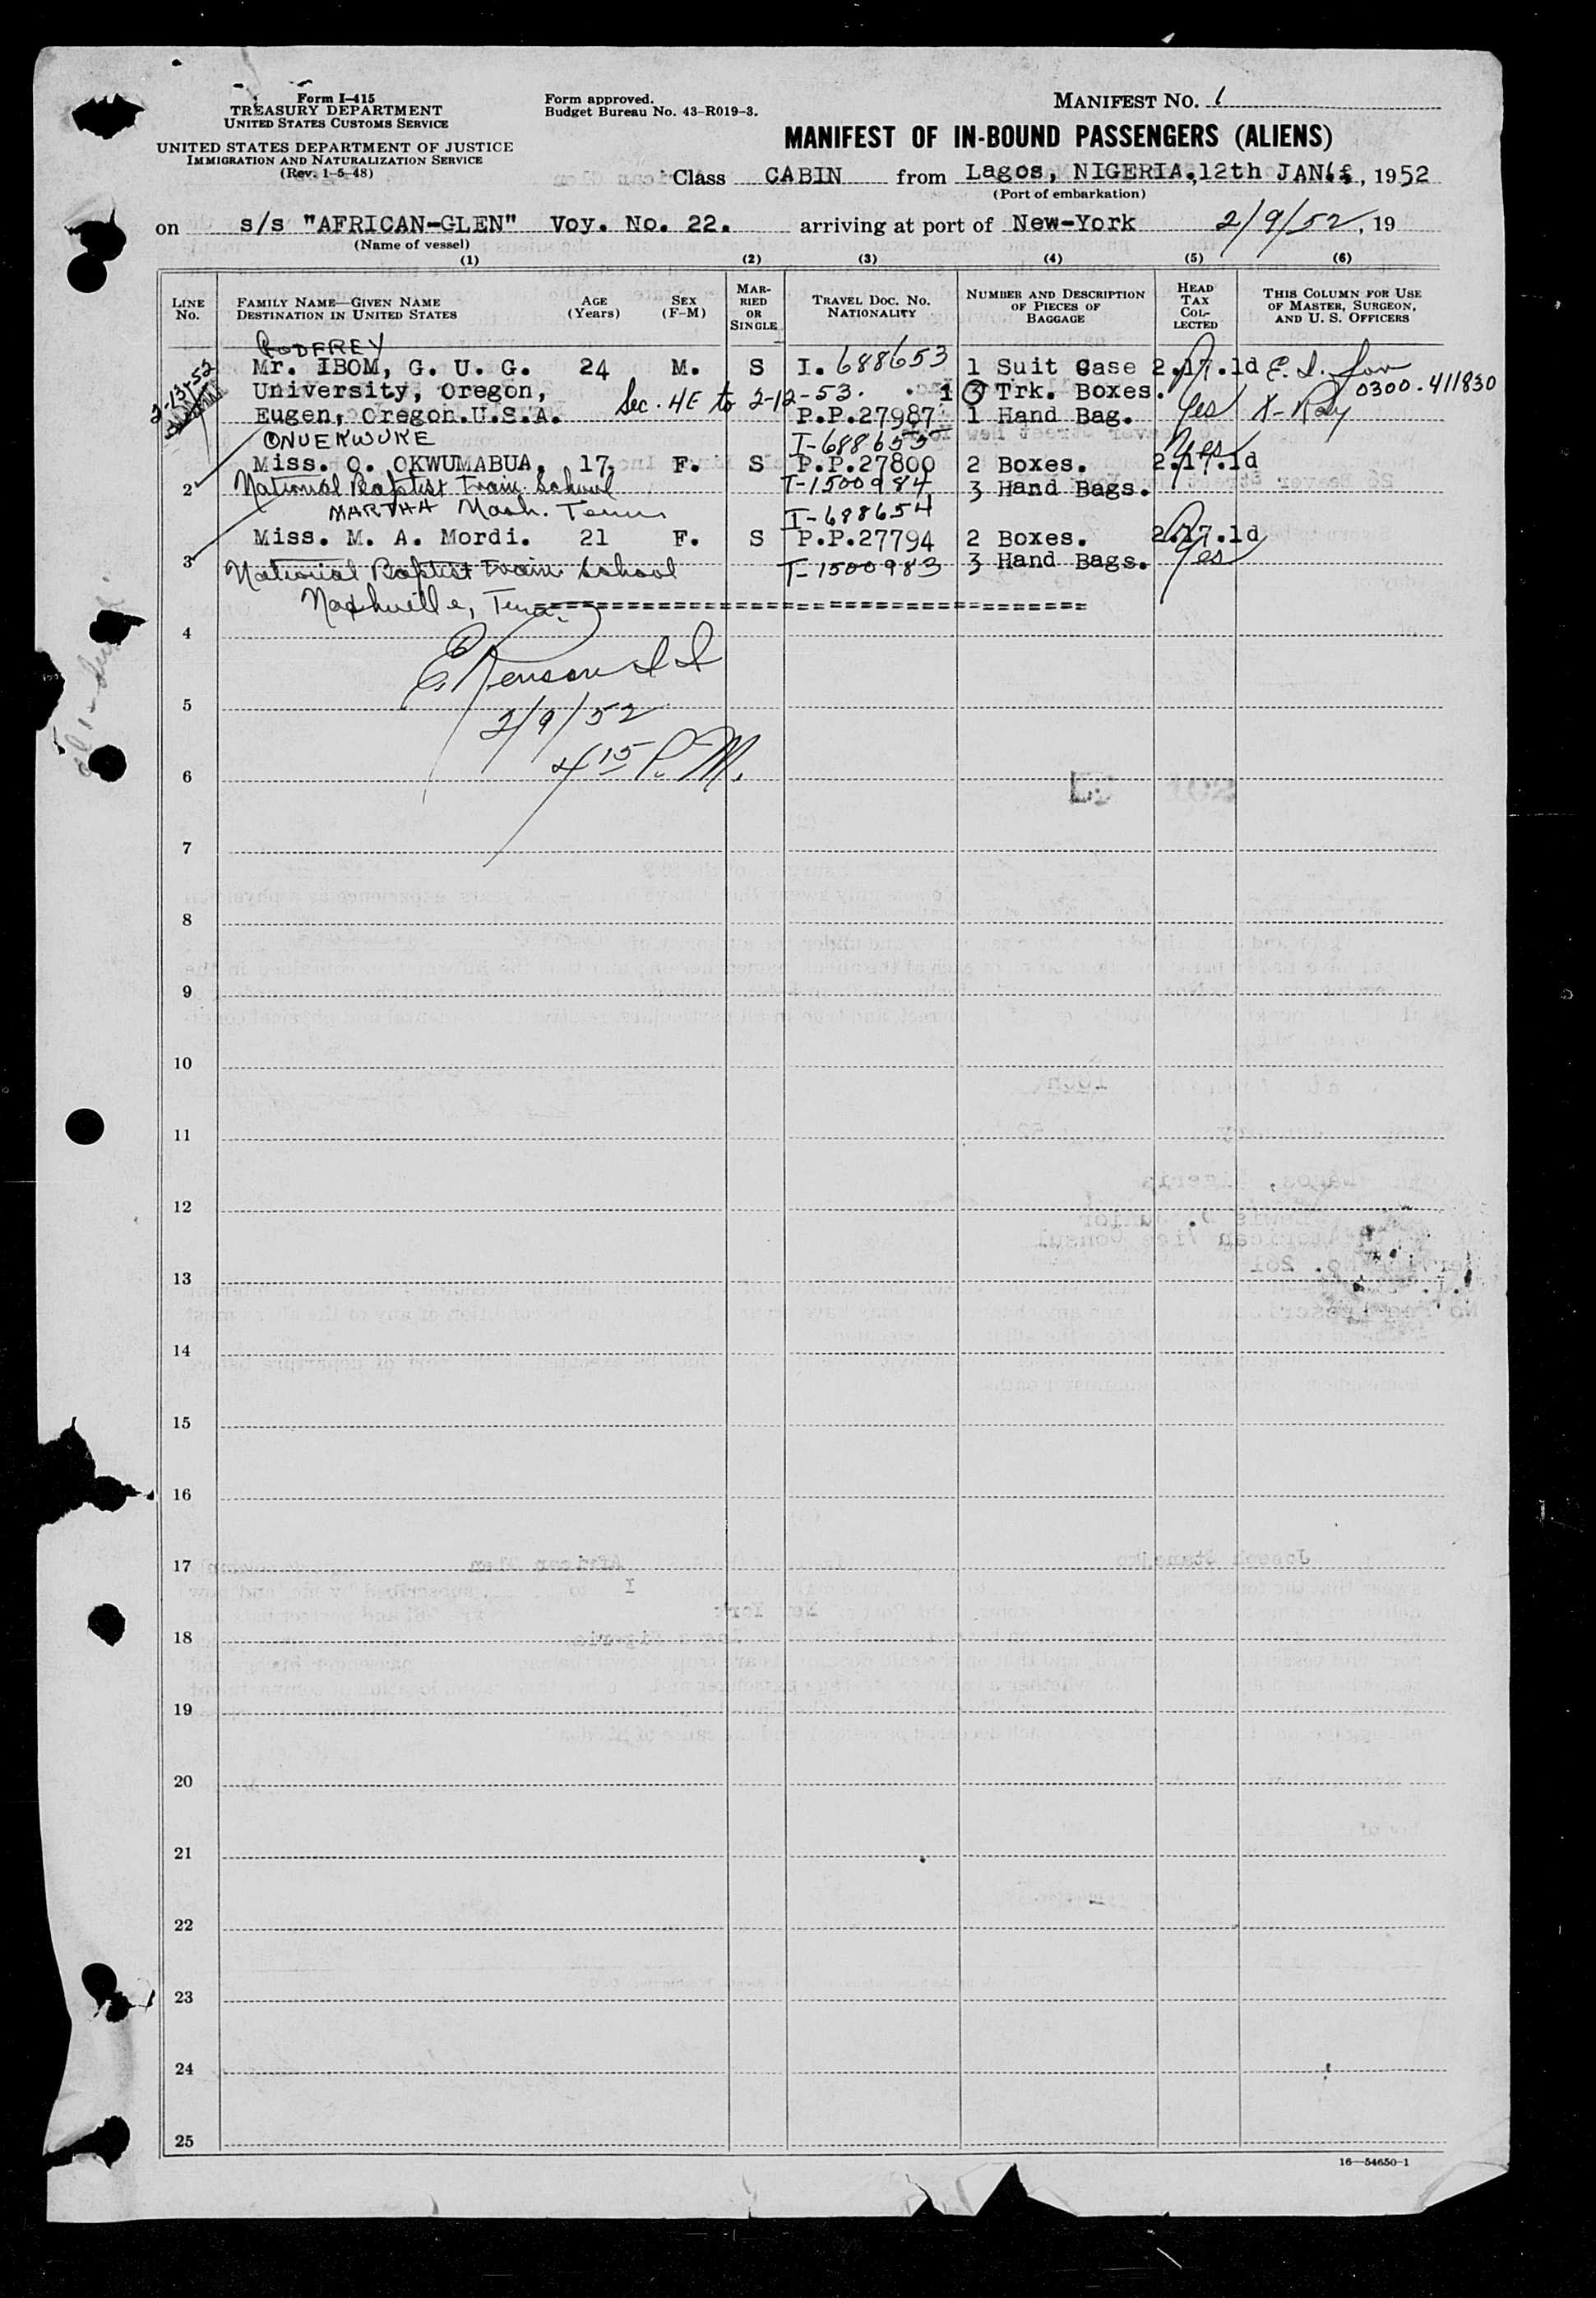 Form I-415
TREASURY DEPARTMENT
UNITED STATES CUSTOMS SERVICE
UNITED STATES DEPARTMENT OF JUSTICE
IMMIGRATION AND NATURALIZATION SERVICE
(Rev. 1-5-48)
Form approved.
Budget Bureau No. 43-R019-3.
MANIFEST NO. 1
MANIFEST OF IN-BOUND PASSENGERS (ALIENS)
Class CABIN from Lagos, NIGERIA. 12th JAN , 1952
(Port of embarkation)
on s/s "AFRICAN-GLEN" Voy. No. 22. arriving at port of New-York 2/9/52, 19
(Name of vessel)
(1) (2) (3) (4) (5) (6)
LINE NO.
FAMILY NAME—GIVEN NAME
DESTINATION IN UNITED STATES
AGE (Years)
SEX (F-M)
MARRIED OR SINGLE
TRAVEL DOC. NO. NATIONALITY
NUMBER AND DESCRIPTION OF PIECES OF BAGGAGE
HEAD TAX COLLECTED
THIS COLUMN FOR USE OF MASTER, SURGEON, AND U. S. OFFICERS
GODFREY
Mr. IBOM, G. U. G. 24 M. S I. 688653 1 Suit Case 2.17.1d
2-13-52
University, Oregon, Sec. 4E to 2-12-53. 1 3 Trk. Boxes. 0300-411830
Eugen, Oregon.U.S.A. P.P.27987 1 Hand Bag. Yes X-Ray
ONUEKWUKE I-688655
Miss. O. OKWUMABUA. 17. F. S P.P.27800 2 Boxes. 2.17.1d Yes
2 National Baptist Train. School T-1500984 3 Hand Bags.
MARTHA Nash. Tenn I-688654
Miss. M. A. Mordi. 21 F. S P.P.27794 2 Boxes. 2.17.1d
3 National Baptist Train School T-1500983 3 Hand Bags. Yes
Nashville, Tenn.
4
5
2/9/52
6 4 15 P.M.
7
8
9
10
11
12
13
14
15
16
17
18
19
20
21
22
23
24
25
16—54650-1